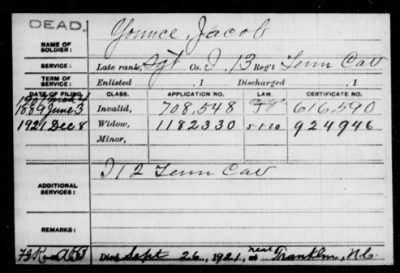 DEAD.
NAME OF SOLDIER: Younce, Jacob
SERVICE: Late rank, Sgt Co. I, 13 Reg't Tenn Cav
TERM OF SERVICE: Enlisted 1 Discharged 1
DATE OF FILING. CLASS. APPLICATION NO. LAW. CERTIFICATE NO.
1889 June 3 Invalid, 708,548 616,590
1921 Dec 8 Widow, 1182330 924946
Minor,
ADDITIONAL SERVICES: I 12 Tenn Cav
REMARKS:
Died Sept 26, 1921, at near Franklin, N.C.